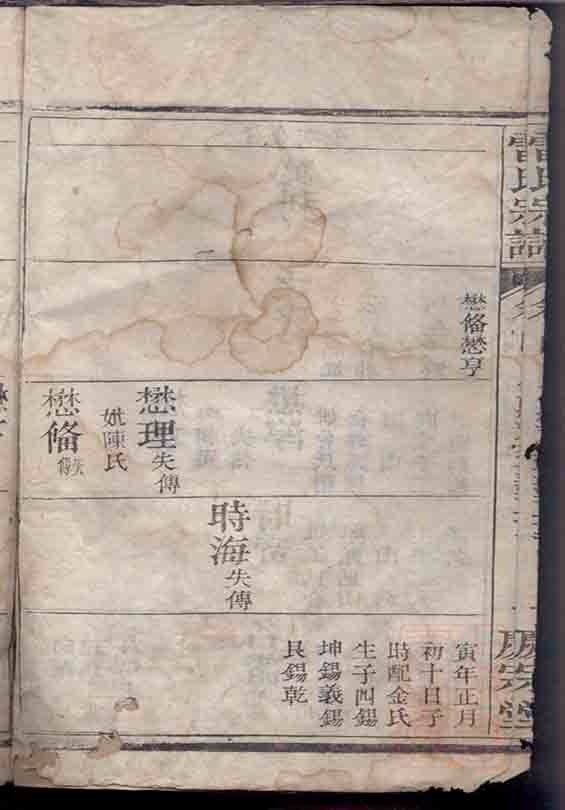 雷氏宗譜
懋脩懋亨
懋理失傳
妣陳氏
懋脩失傳
時海失傳
寅年正月
初十日子
時配金氏
生子四錫
坤錫義錫
艮錫乾